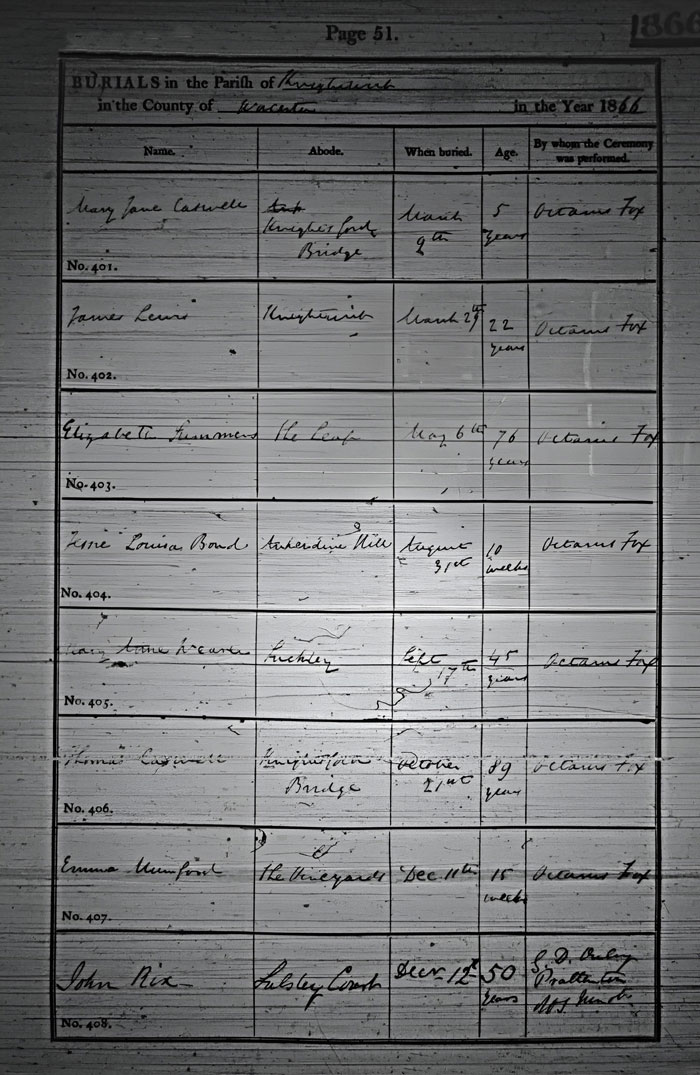 Page 51.
1866
BURIALS in the Parish of Knightwick
in the County of Worcester in the Year 1866
Name. Abode. When buried. Age. By whom the Ceremony was performed.
Mary Jane Caswell Knightsford Bridge March 9th 5 years Octavius Fox
No. 401.
James Lewis Knightwick March 29th 22 years Octavius Fox
No. 402.
Elizabeth Summers The Leap May 6th 76 years Octavius Fox
No. 403.
Jessie Louisa Bond Ankerdine Hill August 31st 10 weeks Octavius Fox
No. 404.
Mary Anne Suckley Sept 17th 45 years Octavius Fox
No. 405.
Thomas Caswell Knightsford Bridge October 21st 89 years Octavius Fox
No. 406.
Emma Mumford The Vineyards Dec. 11th 15 weeks Octavius Fox
No. 407.
John Rix Lulsley Court Decr. 12th 50 years G. D.
No. 408.